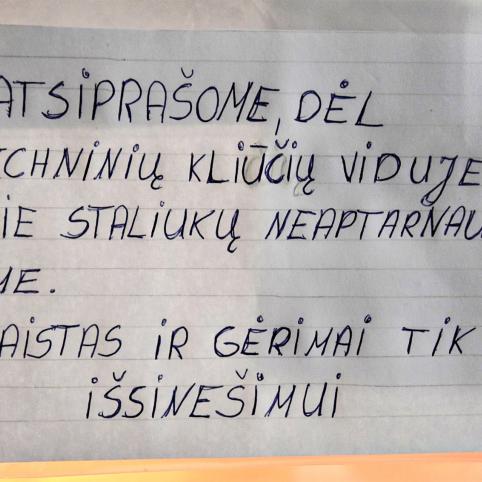 ATSIPRAŠOME, DĖL
CHNINIŲ KLIŪČIŲ VIDUJE
IE STALIUKŲ NEAPTARNAU
ME.
AISTAS IR GĖRIMAI TIK
IŠSINEŠIMUI